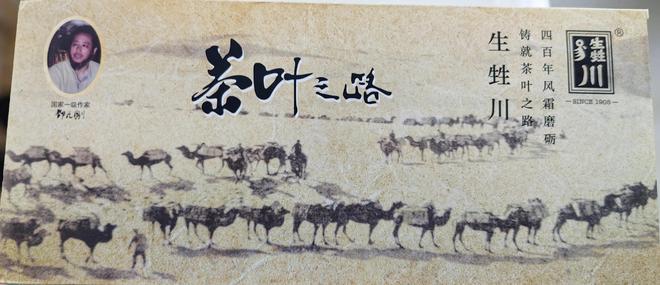 茶叶之路
国家一级作家
四百年风霜磨砺
铸就茶叶之路
生甡川
生甡川
®
SINCE 1908